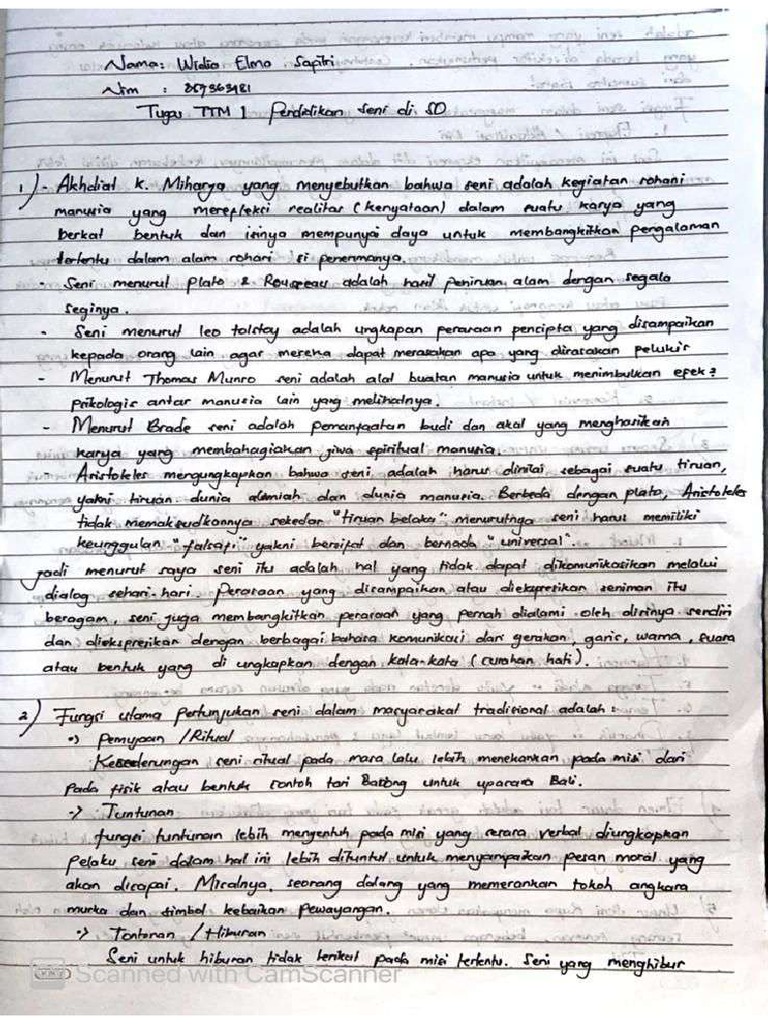 Nama : Widia Elma Sapitri
Nim : 857363981
Tugas TTM 1 Pendidikan seni di SD
1) - Akhdiat K. Miharja yang menyebutkan bahwa seni adalah kegiatan rohani
manusia yang merefleksi realitas (kenyataan) dalam suatu karya yang
berkat bentuk dan isinya mempunyai daya untuk membangkitkan pengalaman
tertentu dalam alam rohani si penerimanya.
- Seni menurut Plato & Rousseau adalah hasil peniruan alam dengan segala
seginya.
- Seni menurut leo tolstoy adalah ungkapan perasaan pencipta yang disampaikan
kepada orang lain agar mereka dapat merasakan apa yang dirasakan pelukis
- Menurut Thomas Munro seni adalah alat buatan manusia untuk menimbulkan efek²
psikologis antar manusia lain yang melihatnya.
- Menurut Brade seni adalah pemanfaatan budi dan akal yang menghasilkan
karya yang membahagiakan jiwa spiritual manusia.
- Aristoteles mengungkapkan bahwa seni adalah harus dinilai sebagai suatu tiruan,
yakni tiruan dunia alamiah dan dunia manusia. Berbeda dengan plato, Aristoteles
tidak memaksudkannya sekedar "tiruan belaka" menurutnya seni harus memiliki
keunggulan "falsafi" yakni bersifat dan bernada "universal".
Jadi menurut saya seni itu adalah hal yang tidak dapat dikomunikasikan melalui
dialog sehari-hari. Perasaan yang disampaikan atau diekspresikan seniman itu
beragam, seni juga membangkitkan perasaan yang pernah dialami oleh dirinya sendiri
dan diekspresikan dengan berbagai bahasa komunikasi dari gerakan, garis, warna, suara
atau bentuk yang di ungkapkan dengan kata-kata (curahan hati).
2) Fungsi utama pertunjukan seni dalam masyarakat tradisional adalah :
-> Pemujaan / Ritual
Kecenderungan seni ritual pada masa lalu lebih menekankan pada misi dari
pada fisik atau bentuk contoh tari Barong untuk upacara Bali.
-> Tuntunan
fungsi tuntunan lebih menyentuh pada misi yang secara verbal diungkapkan
pelaku seni dalam hal ini lebih dituntut untuk menyampaikan pesan moral yang
akan dicapai. Misalnya, seorang dalang yang memerankan tokoh angkara
murka dan simbol kebaikan pewayangan.
-> Tontonan / Hiburan
Seni untuk hiburan tidak terikat pada misi tertentu. Seni yang menghibur
Scanned with CamScanner